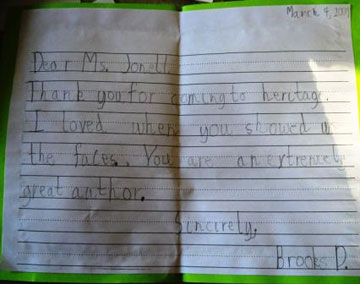 March 9, 2009
Dear Ms. Jonell
Thank you for coming to heritage.
I loved when you showed
the faces. You are an extremely
great author.
Sincerely,
Brooks D.